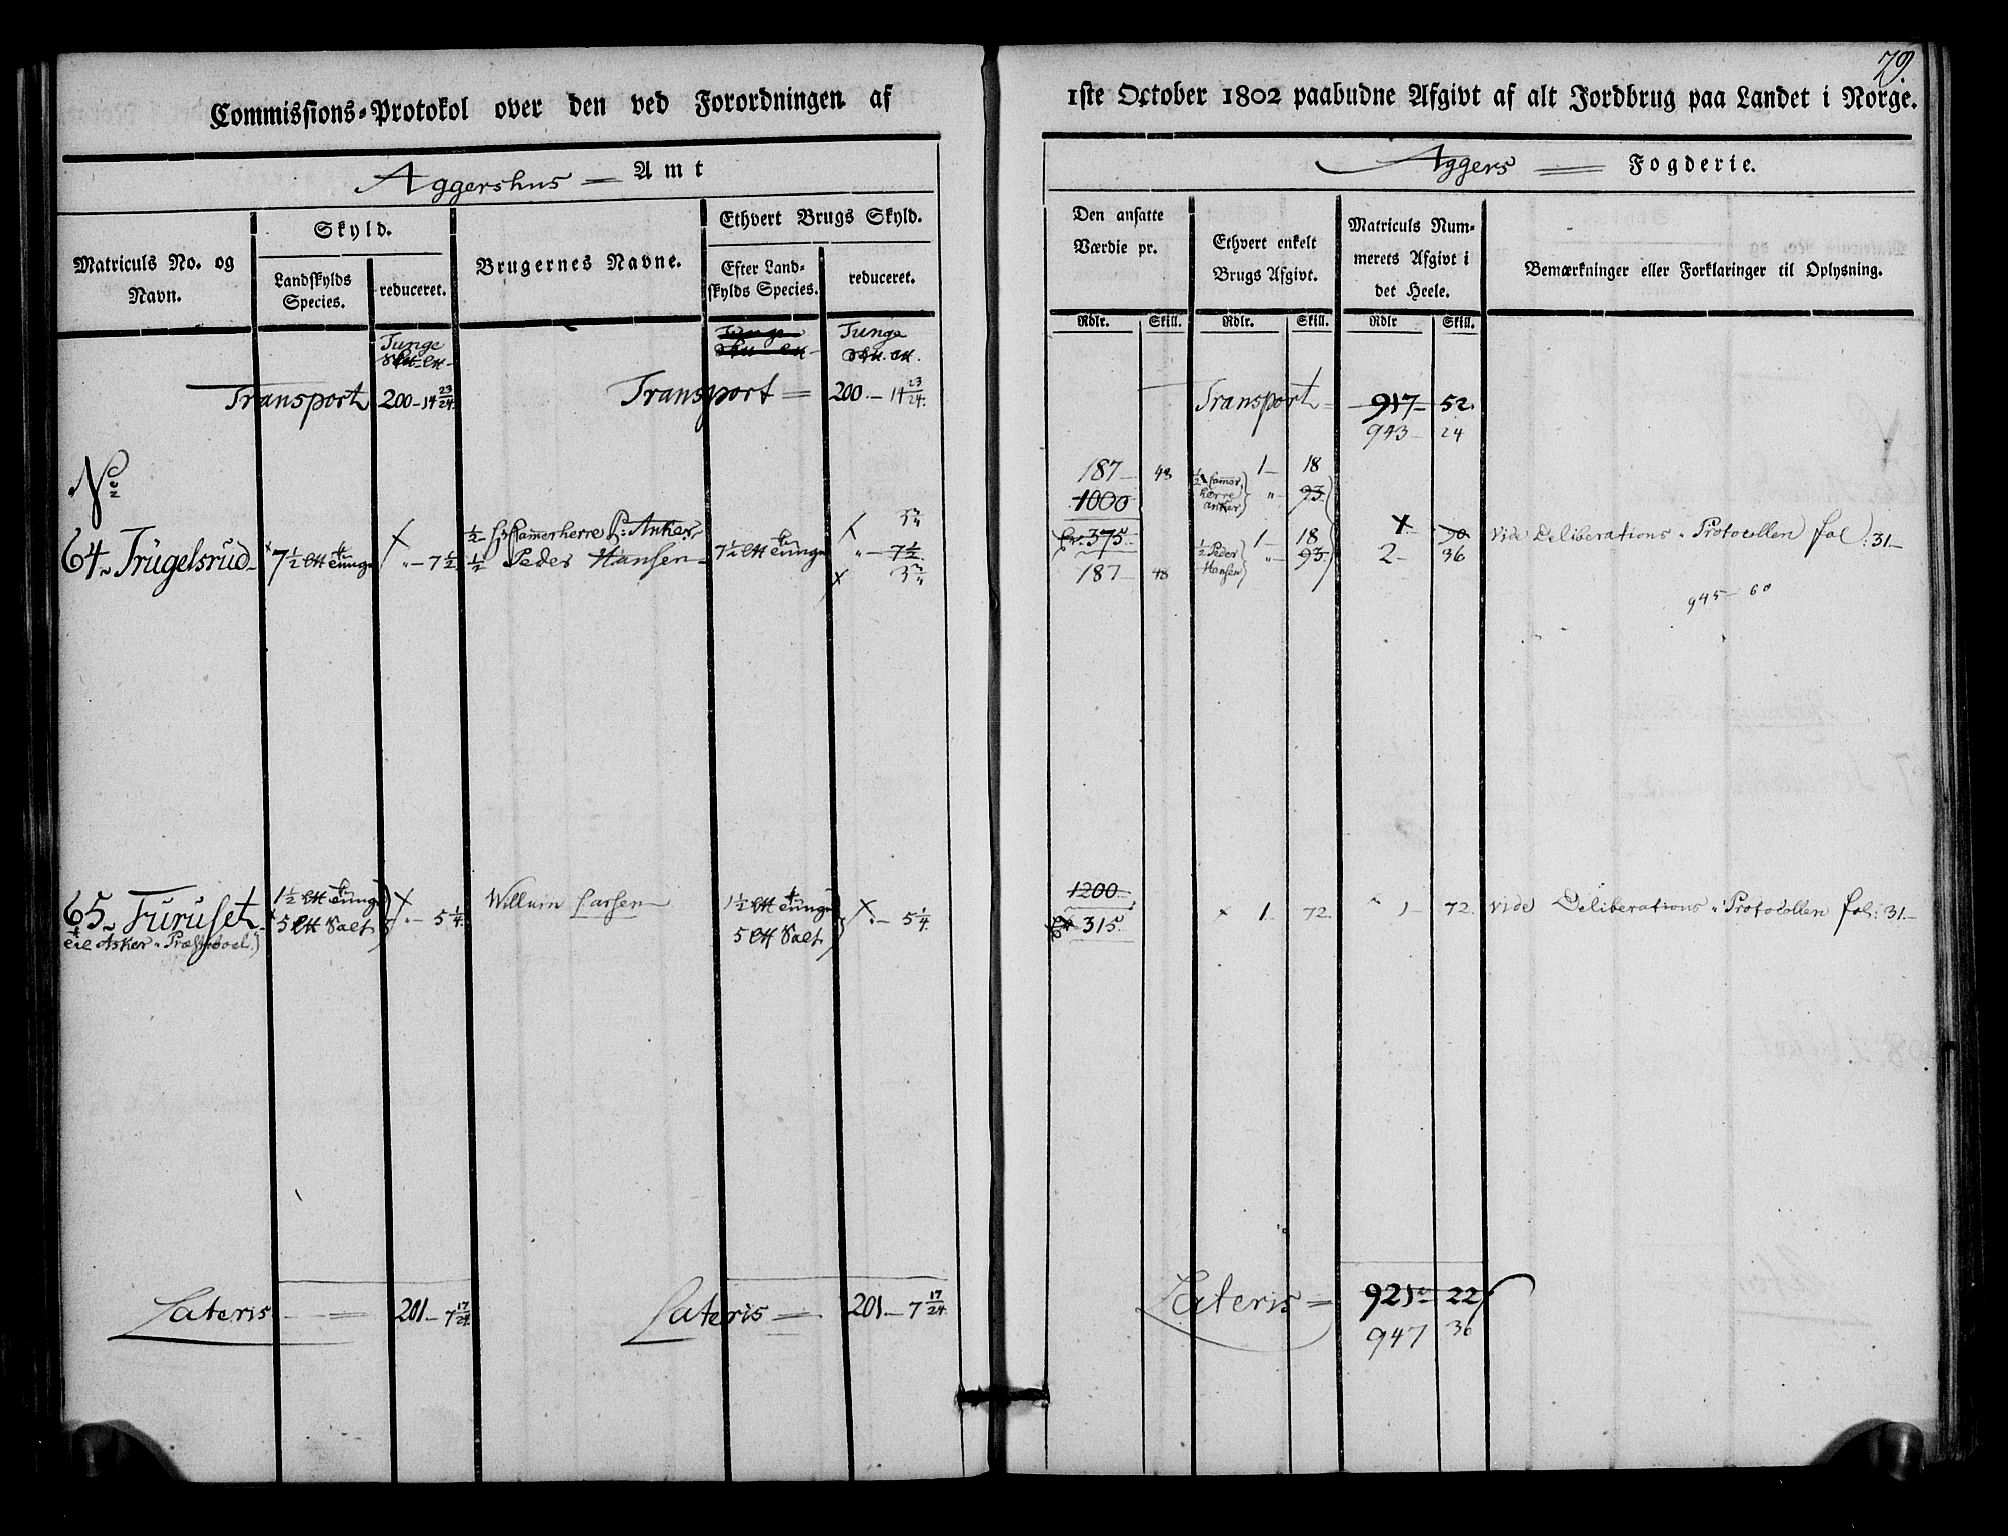 79.
Commissions-Protokol over den ved Forordningen af 1ste October 1802 paabudne Afgivt af alt Jordbrug paa Landet i Norge.
Aggershus Amt
Aggers Fogderie.
Matriculs No. og Navn.
Skyld.
Landskylds Species.
reduceret.
Brugernes Navne.
Ethvert Brugs Skyld.
Efter Landskylds Species.
reduceret.
Den ansatte Værdie pr.
Ethvert enkelt Brugs Afgivt.
Matriculs Nummerets Afgivt i det Heele.
Bemærkninger eller Forklaringer til Oplysning.
Rdlr. Skill. Rdlr. Skill. Rdlr Skill.
Tunge
Tunge
Tunge
Transport 200 - 14 23/24.
Transport = 200. - 14 23/24.
Transport = 917 - 52.
943 - 24
No
64. Trugelsrud 7 1/2 tunge " - 7 1/2
1/2 H: Camerherre P: Anker
1/2 Peder Hansen
7 1/2 tunge
" - 7 1/2
187 - 48
1000
for 375.
187 - 48
1/2 Camerherre Anker } 1 - 18
" - 93.
1/2 Peder Hansen } 1 - 18
" - 93.
1. - 90
2 - 36
vide Deliberations-Protocollen fol: 31 -
945 - 60
65. Furuset
til Asker Præsteboel.
1 1/2 tunge
5 Salt } " - 5 1/4.
Willum Larsen
1 1/2 tunge
5 Salt } " - 5 1/4.
1200
315.
1. 72.
1 - 72.
vide Deliberations-Protocollen fol: 31 -
Lateris = 201 - 7 17/24.
Lateris = 201 - 7 17/24.
Lateris = 921 - 22
947 36